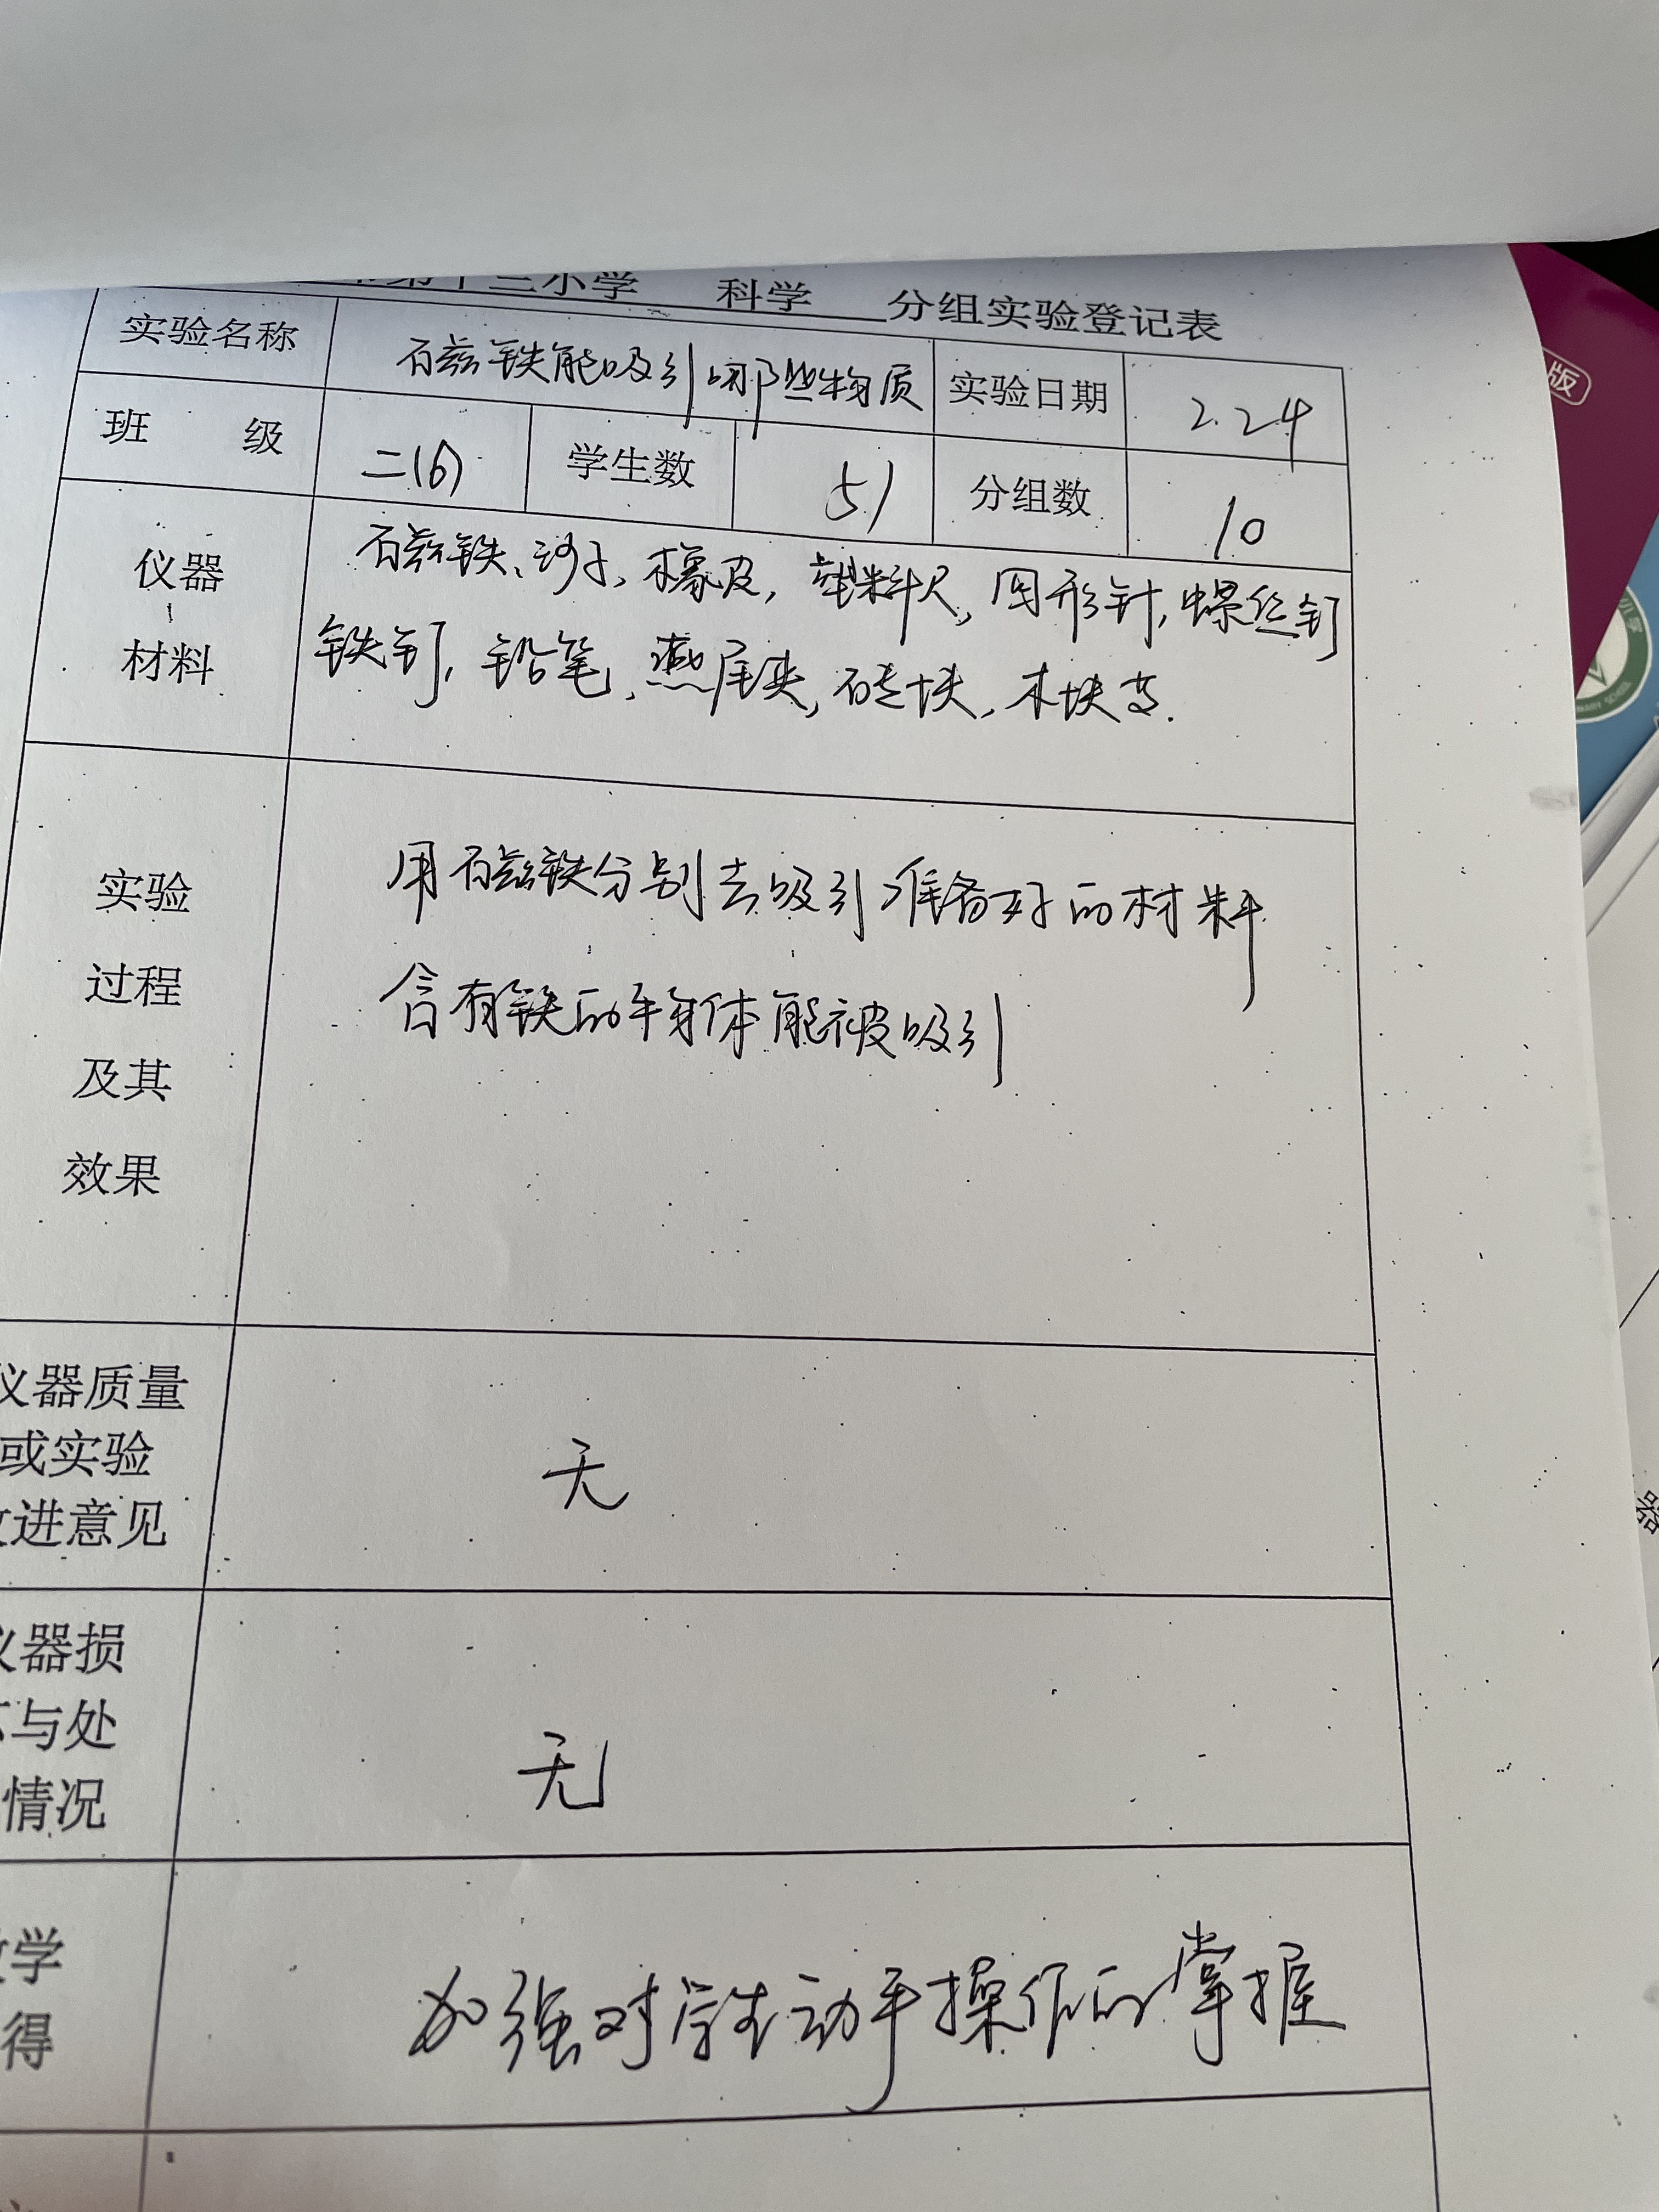 第十三小学 科学 分组实验登记表
实验名称 磁铁能吸引哪些物质 实验日期 2.24
班 级 二(6) 学生数 51 分组数 10
仪器
材料
磁铁、沙子、橡皮，塑料尺，回形针，螺丝钉
铁钉，铅笔，燕尾夹，砖块，木块等.
实验
过程
及其
效果
用磁铁分别去吸引准备好的材料
含有铁的 体能被吸引
仪器质量
或实验
改进意见
无
仪器损
与处
情况
无
学
得
加强对学生动手操作的掌握
版
小学
器